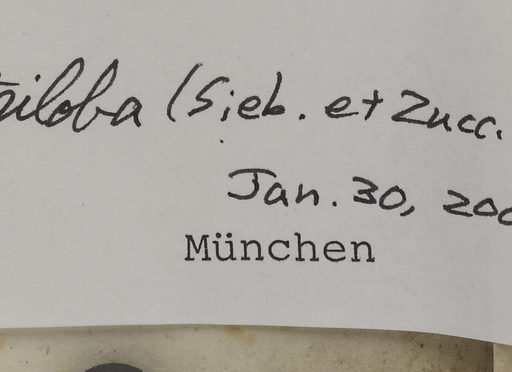 triloba (Sieb. et Zucc.
Jan. 30, 200
München